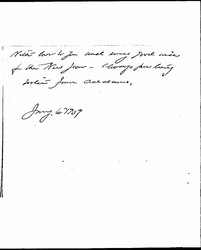 With love to you and every good wish
for the New Year – Always your loving
sister Jane Addams.
Jany. 6" 1709